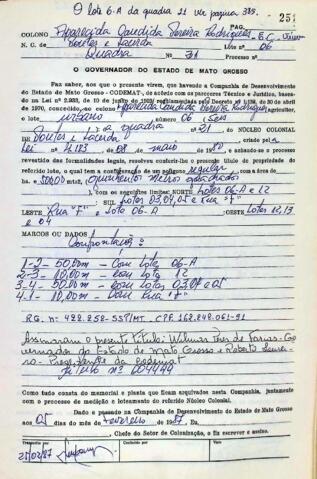 O lote 6-A da quadra 21 vir pagina 325.
251
COLONO Aparecida Candida Pereira Rodrigues, B.C.
N. C. de Pontes e Lacerda Lote nº 06
Quadra nº 21 Processo nº
O GOVERNADOR DO ESTADO DE MATO GROSSO
Faz saber, aos que o presente virem, que havendo a Companhia de Desenvolvimento
do Estado de Mato Grosso - CODEMAT, de acôrdo com os preceitos Técnico e Jurídico, baseado
na Lei nº 2.933, de 10 de junho de 1969 regulamentada pelo Decreto nº 1.138, de 30 de abril
de 1970, concedido, ao Aparecida Candida Pereira Rodrigues agricultor,
o lote urbano nº 06 (seis
) da quadra nº 21. do NÚCLEO COLONIAL
de Pontes e Lacerda, criado pela
Lei nº 4.183 de 08 de maio de 1980 e achando-se o processo
revestido das formalidades legais, resolveu conferir-lhe o presente título de propriedade
do referido lote, o qual tem a configuração de um polígono regular e área de
ha. = 500,00 m² (quinhentos metros quadrados
), com os seguintes limites: NORTE Lotes 06-A e 12
SUL Lotes 03, 04, 05 e rua "F"
LESTE Rua "F" e Lote 06-A OESTE Lotes 12, 13
e 04
MARCOS OU DADOS
Confrontações:
1-2 - 50,00m - Com lote 06-A
2-3 - 10,00m - Com lote 12
3-4 - 50,00m - com lotes 03, 04 e 05
4-1 - 10,00m - Com rua "F"
R.G. nº 428.258-SSP/MT - CPF 168.848.061-91
Assinaram o presente título: Wilmar Peres de Farias - Go-
vernador do Estado de Mato Grosso e Roberto
- Presidente da Codemat
Título nº 004449
Como tudo consta do memorial e planta que ficam arquivados nesta Companhia, juntamente
com o processo de medição e loteamento do referido Núcleo Colonial.
Dado e passado na Companhia de Desenvolvimento do Estado de Mato Grosso
aos 05 dias do mês de fevereiro de 1987. Eu,
, Chefe do Setor de Colonização, o fiz escrever e assino.
25/02/87